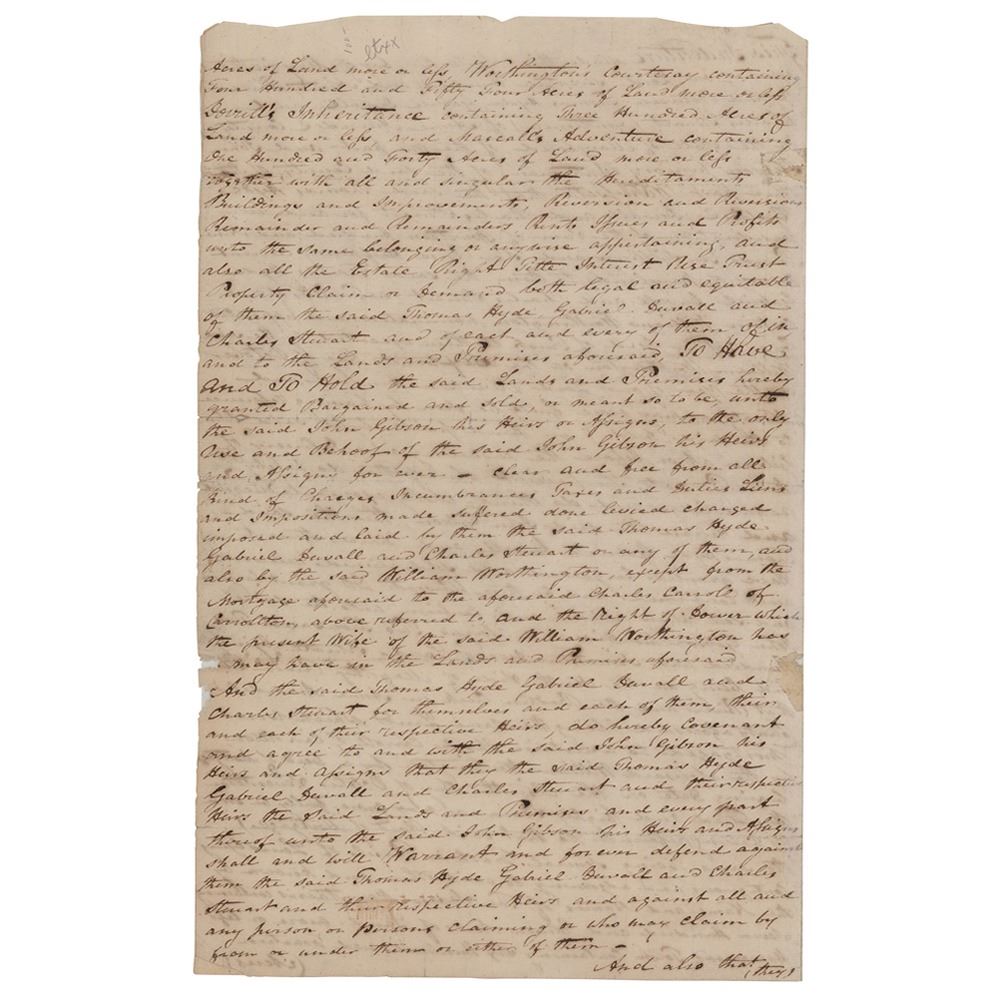 Acres of Land more or less, Worthington's Courtesay containing
Four Hundred and Fifty Four Acres of Land more or less
Dorrill's Inheritance containing Three Hundred Acres of
Land more or less, and Adventure containing
One Hundred and Forty Acres of Land more or less
together with all and singular the Hereditaments
Buildings and Improvements, Reversion and Reversions
Remainder and Remainders Rents Issues and Profits
unto the same belonging or anywise appertaining, and
also all the Estate Right Title Interest Use Trust
Property Claim or Demand both legal and equitable
of them the said Thomas Hyde, Gabriel Duvall and
Charles Steuart and of each and every of them of in
and to the Lands and Premises aforesaid, To Have
and To Hold the said Lands and Premises hereby
granted Bargained and sold, or meant so to be, unto
the said John Gibson his Heirs or Assigns, to the only
Use and Behoof of the said John Gibson his Heirs
and Assigns for ever – clear and free from all
Kind of Charges Incumbrances Taxes and Duties Liens
and Impositions made suffered done levied charged
imposed and laid by them the said Thomas Hyde
Gabriel Duvall and Charles Steuart or any of them, and
also by the said William Worthington, except from the
Mortgage aforesaid to the aforesaid Charles Carroll of
Carrollton, above referred to and the Right of Dower which
the present Wife of the said William Worthington has
may have in the Lands and Premises aforesaid
And the said Thomas Hyde Gabriel Duvall and
Charles Steuart for themselves and each of them, their
and each of their respective Heirs, do hereby Covenant
and agree to and with the said John Gibson his
Heirs and Assigns that they the said Thomas Hyde
Gabriel Duvall and Charles Steuart and their respective
Heirs the said Lands and Premises and every part
thereof unto the said John Gibson his Heirs and Assigns
shall and will Warrant and forever defend against
them the said Thomas Hyde Gabriel Duvall and Charles
Steuart and their respective Heirs and against all and
any person or Persons claiming or who may claim by
from or under them or either of them –
And also that (they)